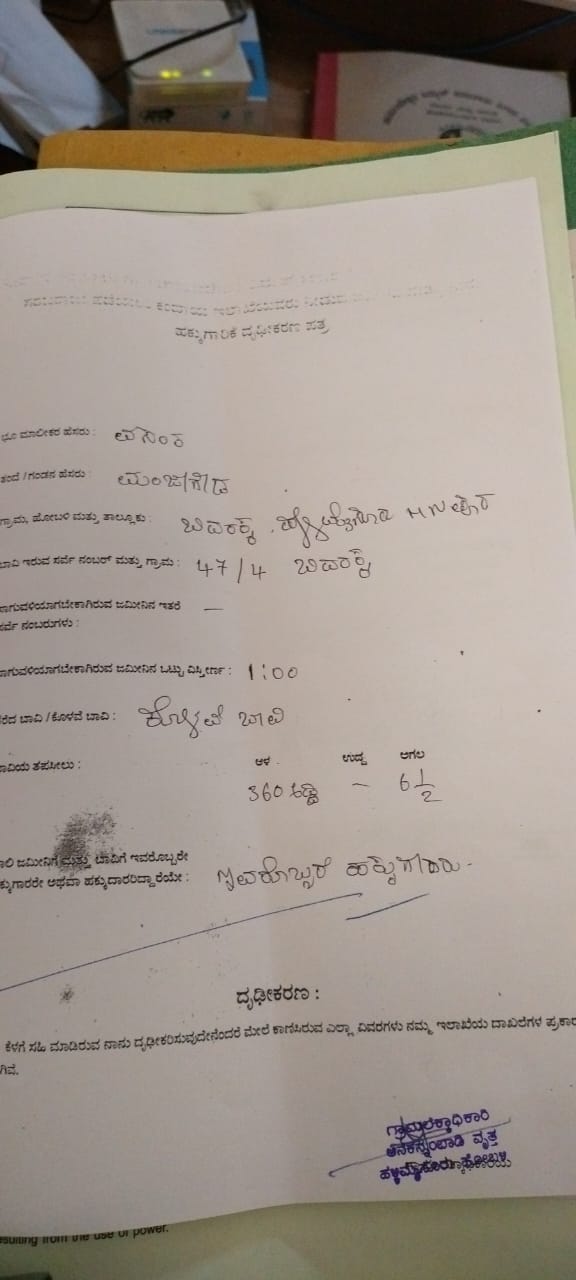 ಹಕ್ಕುಗಾರಿಕೆ ದೃಢೀಕರಣ ಪತ್ರ
ಭೂ ಮಾಲೀಕರ ಹೆಸರು : ವಸಂತ
ತಂದೆ / ಗಂಡನ ಹೆಸರು : ಮಂಜೇಗೌಡ
ಗ್ರಾಮ, ಹೋಬಳಿ ಮತ್ತು ತಾಲ್ಲೂಕು : HN ಪುರ
ಬಾವಿ ಇರುವ ಸರ್ವೆ ನಂಬರ್ ಮತ್ತು ಗ್ರಾಮ : 47/4
ಾಗುವಳಿಯಾಗಬೇಕಾಗಿರುವ ಜಮೀನಿನ ಇತರೆ —
ಸರ್ವೆ ನಂಬರುಗಳು :
ಾಗುವಳಿಯಾಗಬೇಕಾಗಿರುವ ಜಮೀನಿನ ಒಟ್ಟು ವಿಸ್ತೀರ್ಣ : 1:00
ತೆರೆದ ಬಾವಿ / ಕೊಳವೆ ಬಾವಿ : ಕೊಳವೆ ಬಾವಿ
ಆಳ ಉದ್ದ ಅಗಲ
ಬಾವಿಯ ತಪಸೀಲು :
360 ಅಡಿ — 6 1/2
ಜಮೀನಿಗೆ ಮತ್ತು ಬಾವಿಗೆ ಇವರೊಬ್ಬರೇ
ಹಕ್ಕುಗಾರರೇ ಅಥವಾ ಹಕ್ಕುದಾರರಿದ್ದಾರೆಯೇ : ಇವರೊಬ್ಬರೆ ಹಕ್ಕುದಾರರು.
ದೃಢೀಕರಣ :
ಕೆಳಗೆ ಸಹಿ ಮಾಡಿರುವ ನಾನು ದೃಢೀಕರಿಸುವುದೇನೆಂದರೆ ಮೇಲೆ ಕಾಣಿಸಿರುವ ಎಲ್ಲಾ ವಿವರಗಳು ನಮ್ಮ ಇಲಾಖೆಯ ದಾಖಲೆಗಳ ಪ್ರಕಾರ
ಗಿವೆ.
ಗ್ರಾಮಲೆಕ್ಕಾಧಿಕಾರಿ
ಆನೆಕನ್ನಂಬಾಡಿ ವೃತ್ತ
ಹಳ್ಳಿಮೈಸೂರು ಹೋಬಳಿ
resulting from the use of power.